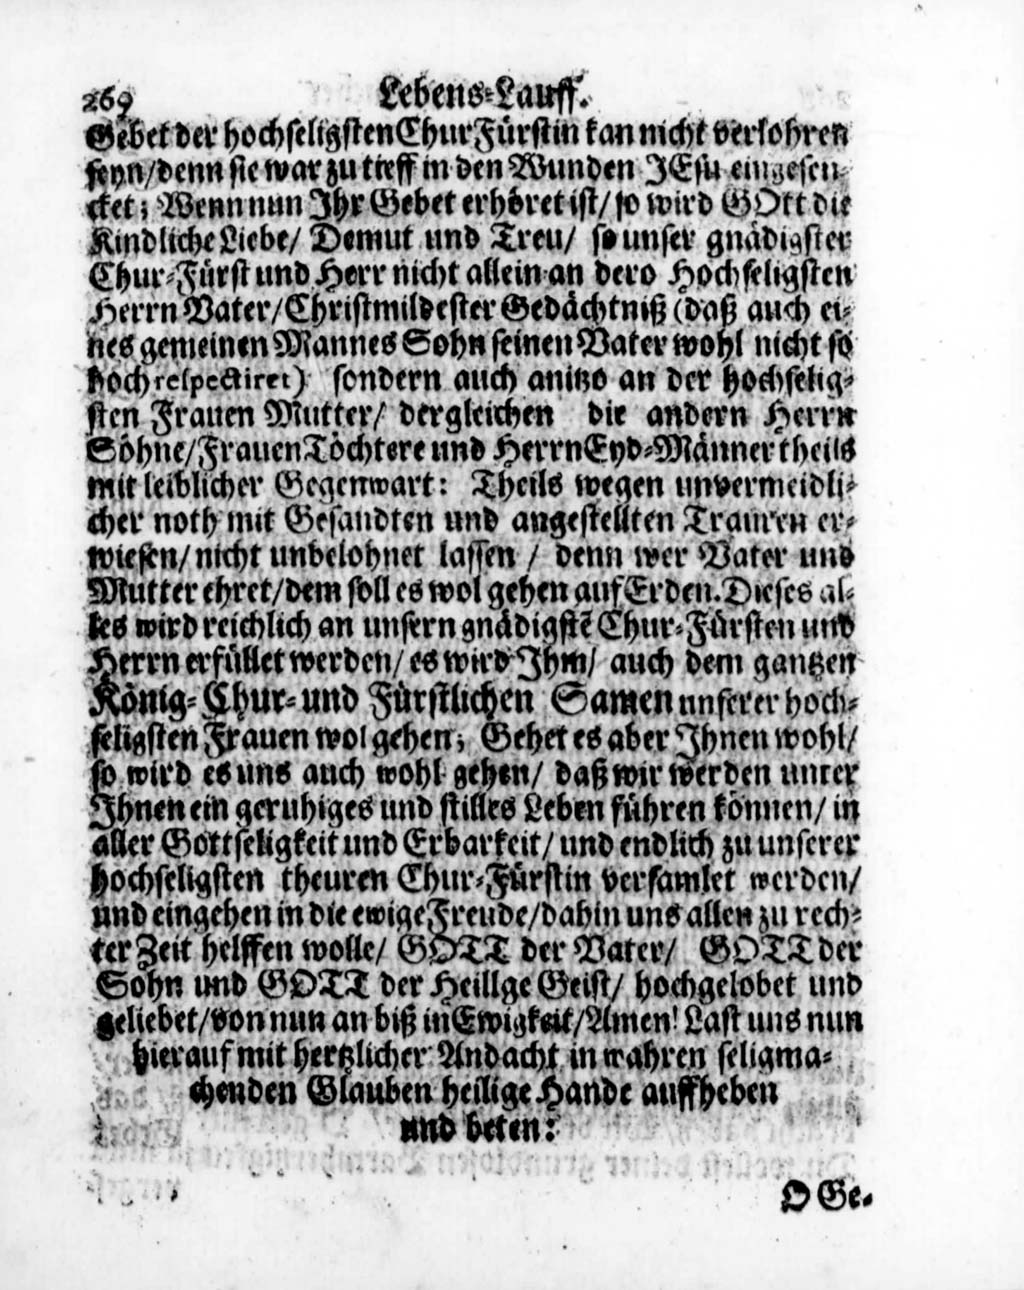 269 Lebens-Lauff.
Gebet der hochseligsten ChurFürstin kan nicht verlohren
seyn/denn sie war zu tieff in den Wunden JEsu eingesen-
cket; Wenn nun Ihr Gebet erhöret ist/ so wird GOtt die
Kindliche Liebe/ Demut und Treu/ so unser gnädigster
Chur-Fürst und Herr nicht allein an dero Hochseligsten
Herrn Vater/Christmildester Gedächtniß (daß auch ei-
nes gemeinen Mannes Sohn seinen Vater wohl nicht so
hoch respectiret) sondern auch anitzo an der hochselig-
sten Frauen Mutter/ dergleichen die andern Herrn
Söhne/Frauen Töchtere und Herrn Eyd-Männer theils
mit leiblicher Gegenwart: Theils wegen unvermeidli-
cher noth mit Gesandten und angestellten Trauren er-
wiesen/nicht unbelohnet lassen / denn wer Vater und
Mutter ehret/dem soll es wol gehen auf Erden. Dieses al-
les wird reichlich an unsern gnädigstē Chur-Fürsten und
Herrn erfüllet werden/ es wird Ihm/ auch dem gantzen
König- Chur- und Fürstlichen Samen unserer hoch-
seligsten Frauen wol gehen; Gehet es aber Ihnen wohl/
so wird es uns auch wohl gehen/ daß wir werden unter
Ihnen ein geruhiges und stilles Leben führen können/ in
aller Gottseligkeit und Erbarkeit/ und endlich zu unserer
hochseligsten theuren Chur-Fürstin versamlet werden/
und eingehen in die ewige Freude/dahin uns allen zu rech-
ter Zeit helffen wolle/ GOTT der Vater/ GOTT der
Sohn und GOTT der Heillge Geist/ hochgelobet und
geliebet/von nun an biß in Ewigkeit/Amen! Last uns nun
hierauf mit hertzlicher Andacht in wahren seligma-
chenden Glauben heilige Hande auffheben
und beten:
O Ge-